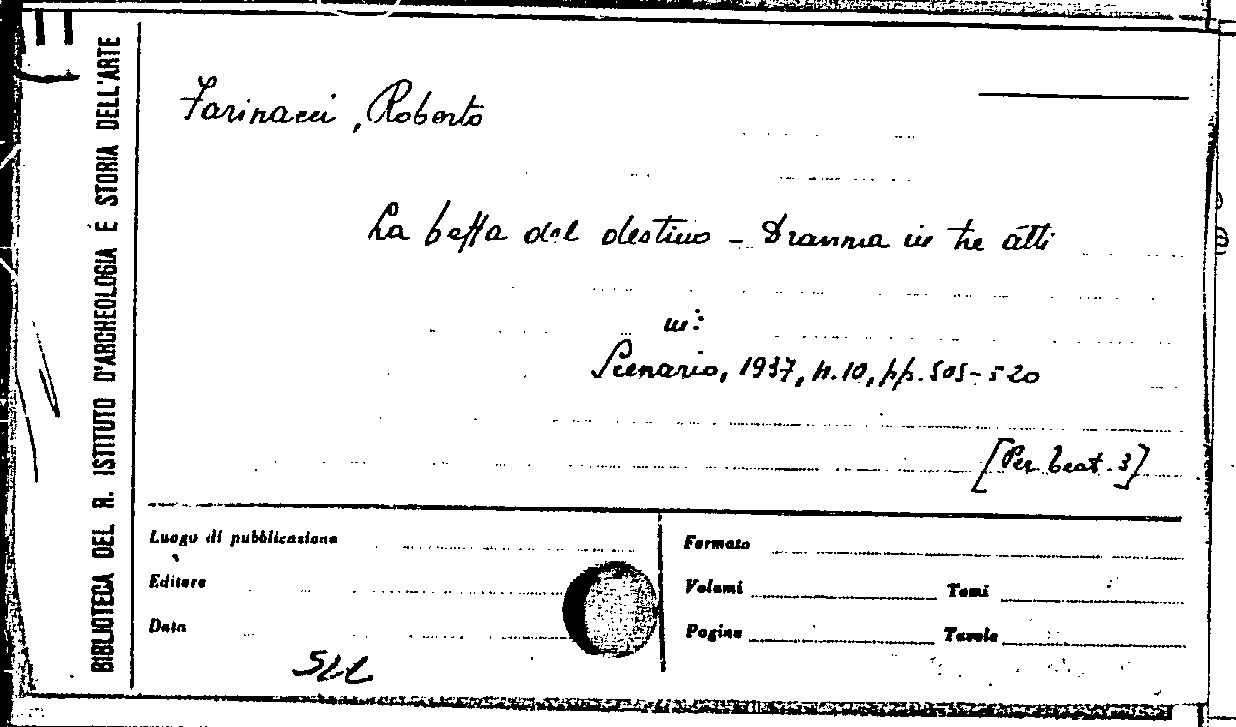 BIBLIOTECA DEL R. ISTITUTO D'ARCHEOLOGIA E STORIA DELL'ARTE
Farinacci, Roberto
La beffa del destino - Dramma in tre atti
in:
Scenario, 1937, n.10, pp. 505-520
[Per. beat. 3]
Luogo di pubblicazione
Editore
Data
Formato
Volumi Tomi
Pagine Tavole